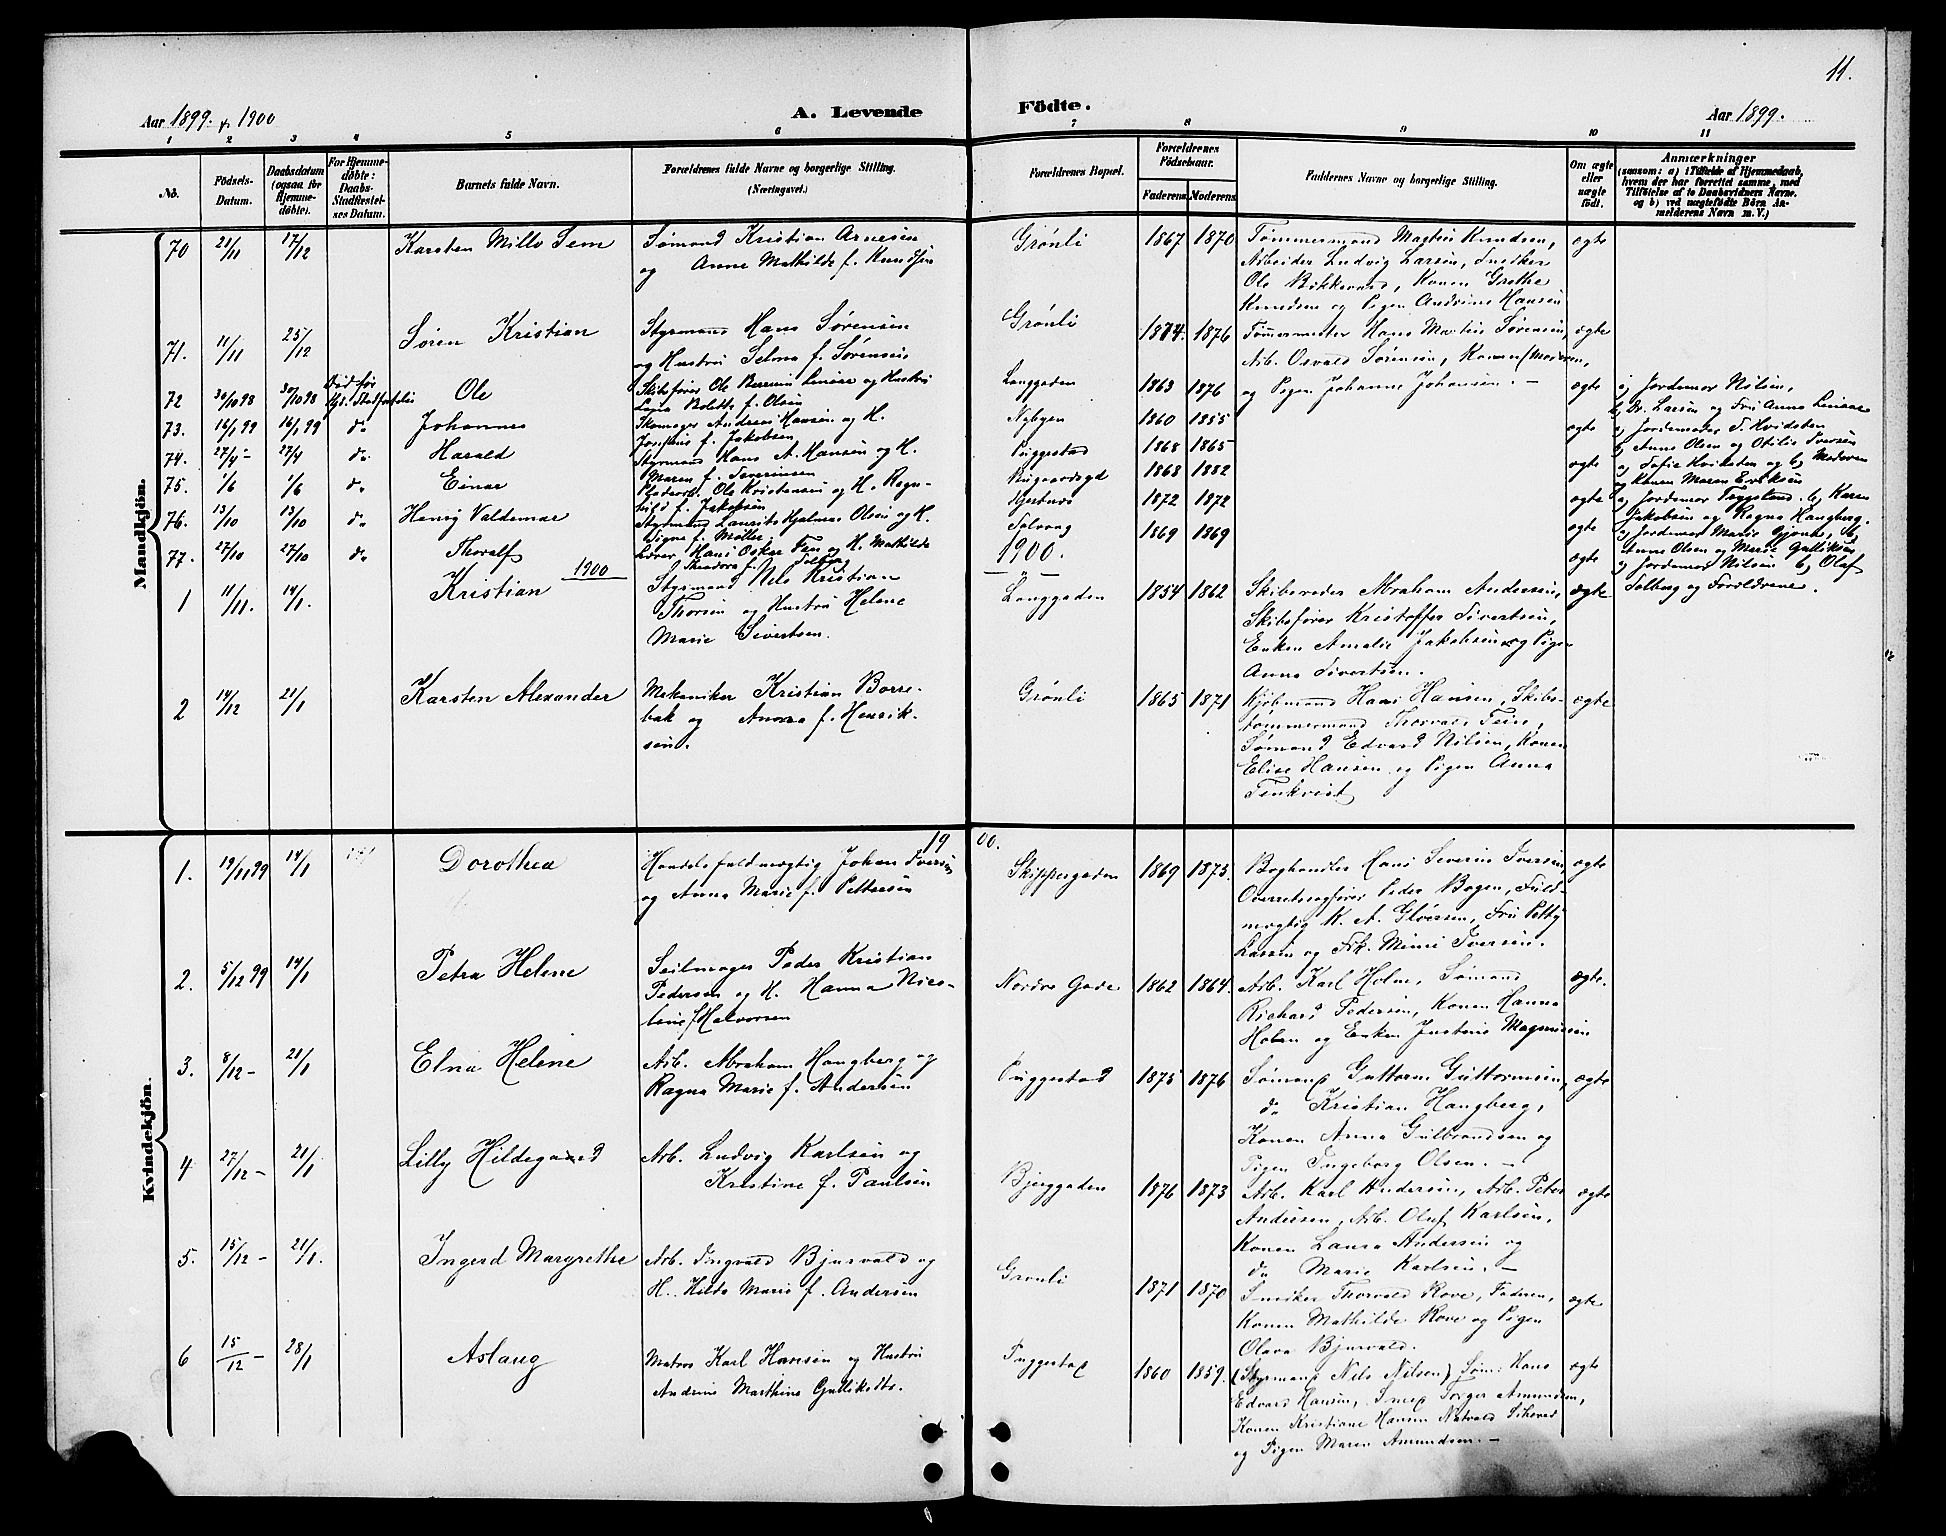 11.
Aar 1899. & 1900
A. Levende
Födte.
Aar 1899.
1 2 3 4 5 6 7 8 9 10 11
No.
Födsels-Datum.
Daabsdatum (ogsaa for Hjemmedøbte).
For Hjemmedøbte: Daabs-Stadfæstelses Datum.
Barnets fulde Navn.
Forældrenes fulde Navne og borgerlige Stilling. (Næringsvei.)
Forældrenes Bopæl.
Forældrenes Födselsaar.
Faderens. Moderens.
Faddernes Navne og borgerlige Stilling.
Om ægte eller uægte födt.
Anmærkninger (saasom: a) i Tilfælde af Hjemmedaab, hvem der har forrettet samme, med Tilföielse af to Daabsvidners Navne. og b) ved uægtefödte Börn Anmelderens Navn m. V.)
Mandkjön.
70 21/11 17/12 Karsten Millo Sem Sømand Kristian Arnesen Grønli 1867 1870 Tømmermand Mathis Knudsen, ægte
og Anne Mathilde f. Knudsen Arbeider Ludvig Larsen, Snedker
Ole Bekkevard, Konen Grethe
Knudsen og Pigen Andrine Hansen
71. 11/11 25/12 Søren Kristian Styrmand Hans Sørensen Grønli 1874. 1876 Tømmermester Hans Mathis Sørensen, ægte
og Hustru Selma f. Sørensen Arb. Osvald Sørensen, Konen (Moderen,
72 30/10 98 30/10 98 Død før Ole Skibsfører Ole Linaae og Hustru Langgaden 1863 1876 og Pigen Johanne Johansen. — ægte a) Jordemor Nilsen,
f. Olsen b) Larsen og Fru Anna Linaae
73. 16/1 99 16/1 99 do Johannes Skomager Andreas Hansen og H. Nybyen 1860 1855 ægte a) Jordemoder T. Kvidsten
Josefine f. Jakobsen b) Anne Olsen og Otilie Iversen
74. 27/4 – 27/4 do. Harald Styrmand Hans A. Hansen og H. Puggestad 1868 1865 ægte a) Sofie Kviksten og b) Moderen
Maren f. Severinsen og Konen Maren Eriksen
75. 1/6 1/6 do Einar Ole Kristensen og H. Ragn- 1868 1882 ægte a) Jordemor Tryggstad. b) Karen
hild f. Jakobsen Jakobsen og Ragna Haugberg.
76. 13/10 13/10 do Henry Valdemar Styrmand Laurits Hjalmar Olsen og H. 1872 1872 ægte a) Jordemor Marie Gjønes, b)
Signe f. Møller. Anne Olsen og Marie Gulliksen
77. 27/10 27/10 do Thoralf Lærer Hans Oskar Fen og H. Mathilde Solvang 1869 1869 ægte a) Jordemor Nilsen b) Olaf
Theodora f. Solberg Solberg og Forældrene.
1900 1900.
1 11/11. 14/1. Kristian Styrmand Nils Kristian Langgaden 1854 1862 Skibsreder Abraham Andersen, ægte
Thorsen og Hustru Helene Skibsfører Kristoffer Sivertsen,
Marie Sivertsen. Enken Amalie Jakobsen og Pigen
Anna Sivertsen.
2 14/12 21/1 Karsten Alexander Mekaniker Kristian Borre- Grønli 1865 1871 Kjøbmand Hans Hansen, Skibs- ægte
bak og Anna f. Henrik- tømmermand Thorvald Teie,
sen. Sømand Edvard Nilsen, Konen
Elise Hansen og Pigen Anna
Tenkvist
Kvindekjön.
1900.
1. 19/11 99 14/1 Dorothea Handelsfuldmægtig Johan Iversen Skippergaden 1869 1875. Boghandler Hans Severin Iversen, ægte
og Anna Marie f. Pettersen Overretssagfører Peder Bogen, Fuld-
mægtig K. A. Glørsen, Fru Petty
Larsen og Frk. Mimi Iversen.
2. 5/12 99 14/1 Petra Helene Seilmager Peder Kristian Nordre Gade 1862 1864. Arb. Karl Holm, Sømand ægte.
Pedersen og H. Hanna Nico- Richard Pedersen, Konen Hanna
line f Halvorsen Holm og Enken Justine Magnussen
3. 8/12 – 21/1 Elna Helene Arb. Abraham Haugberg og Puggestad 1875 1876 Sømand Guttorm Guttormsen, ægte
Ragna Marie f. Andersen do Kristian Haugberg,
Konen Anna Gulbrandsen og
Pigen Ingeborg Olsen. —
4 27/12 – 21/1 Lilly Hildegard Arb. Ludvig Karlsen og Bjerggaden 1876 1873 Arb. Karl Andersen, Arb. Peter ægte
Kristine f. Paulsen Andersen, Arb. Oluf Karlsen,
Konen Laura Andersen og
do Marie Karlsen. —
5. 15/12 – 21/1. Ingerd Margrethe Arb. Ingvald Bjurvald og Grønli 1871 1870 Snedker Thorvald Rove, Faderen, ægte
H. Hilda Marie f. Andersen Konen Mathilde Rove og Pigen
Olava Bjurvald.
6 15/12 – 28/1 Aslaug Matros Karl Hansen og Hustru Puggestad 1860 1859. (Styrmand Nils Nilsen) Søm. Hans ægte
Andrine Marthine Gulliksdtr. Edvard Hansen, Smed Amundsen,
Konen Kristiane Hansen
og Pigen Maren Amundsen. —